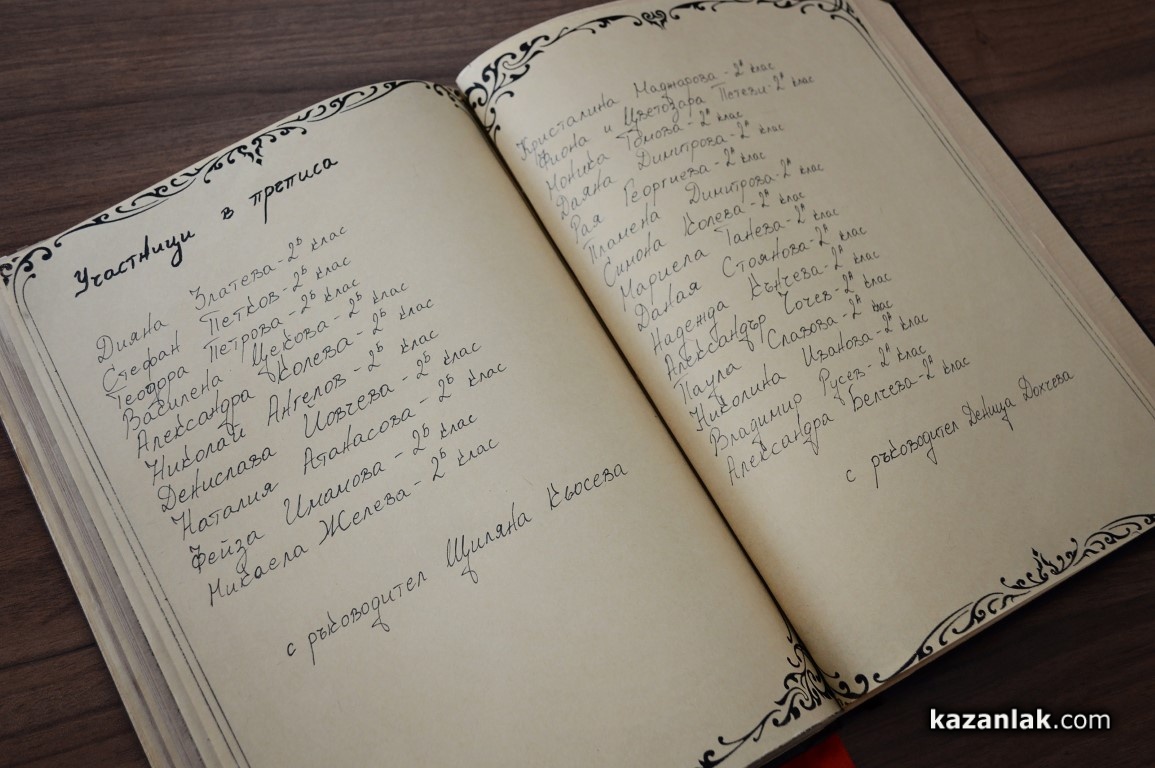 Участници в преписа
Дияна Златева - 2ᵇ клас
Стефан Петков - 2ᵇ клас
Теодора Петрова - 2ᵇ клас
Василена Цекова - 2ᵇ клас
Александра Колева - 2ᵇ клас
Николай Ангелов - 2ᵇ клас
Денислава Йовчева - 2ᵇ клас
Наталия Атанасова - 2ᵇ клас
Фейза Имамова - 2ᵇ клас
Микаела Желева - 2ᵇ клас
с ръководител Щиляна Кьосева
Кристалина Маджарова - 2ᵃ клас
Фиона и Цветозара Печеви - 2ᵃ клас
Моника Томова - 2ᵃ клас
Даяна Димитрова - 2ᵃ клас
Рая Георгиева - 2ᵃ клас
Пламена Димитрова - 2ᵃ клас
Симона Колева - 2ᵃ клас
Мариела Танева - 2ᵃ клас
Даная Стоянова - 2ᵃ клас
Надежда Кънчева - 2ᵃ клас
Александър Чочев - 2ᵃ клас
Паула Славова - 2ᵃ клас
Николина Иванова - 2ᵃ клас
Владимир Русев - 2ᵃ клас
Александра Белчева - 2ᵃ клас
с ръководител Деница Дохчева
kazanlak.com